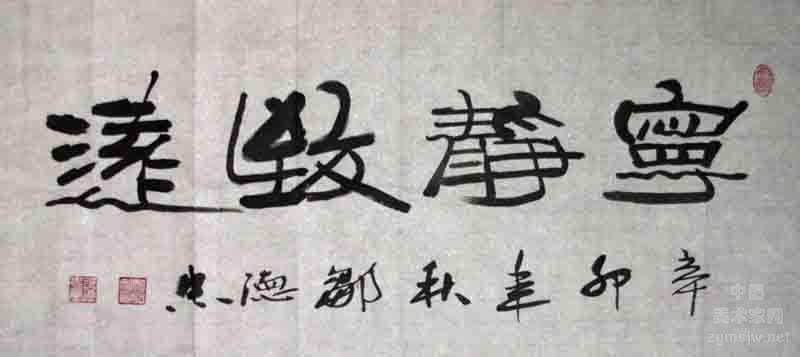 寧靜致遠
辛卯年秋鄒德忠
中国
美术家网
zgmsjw.net